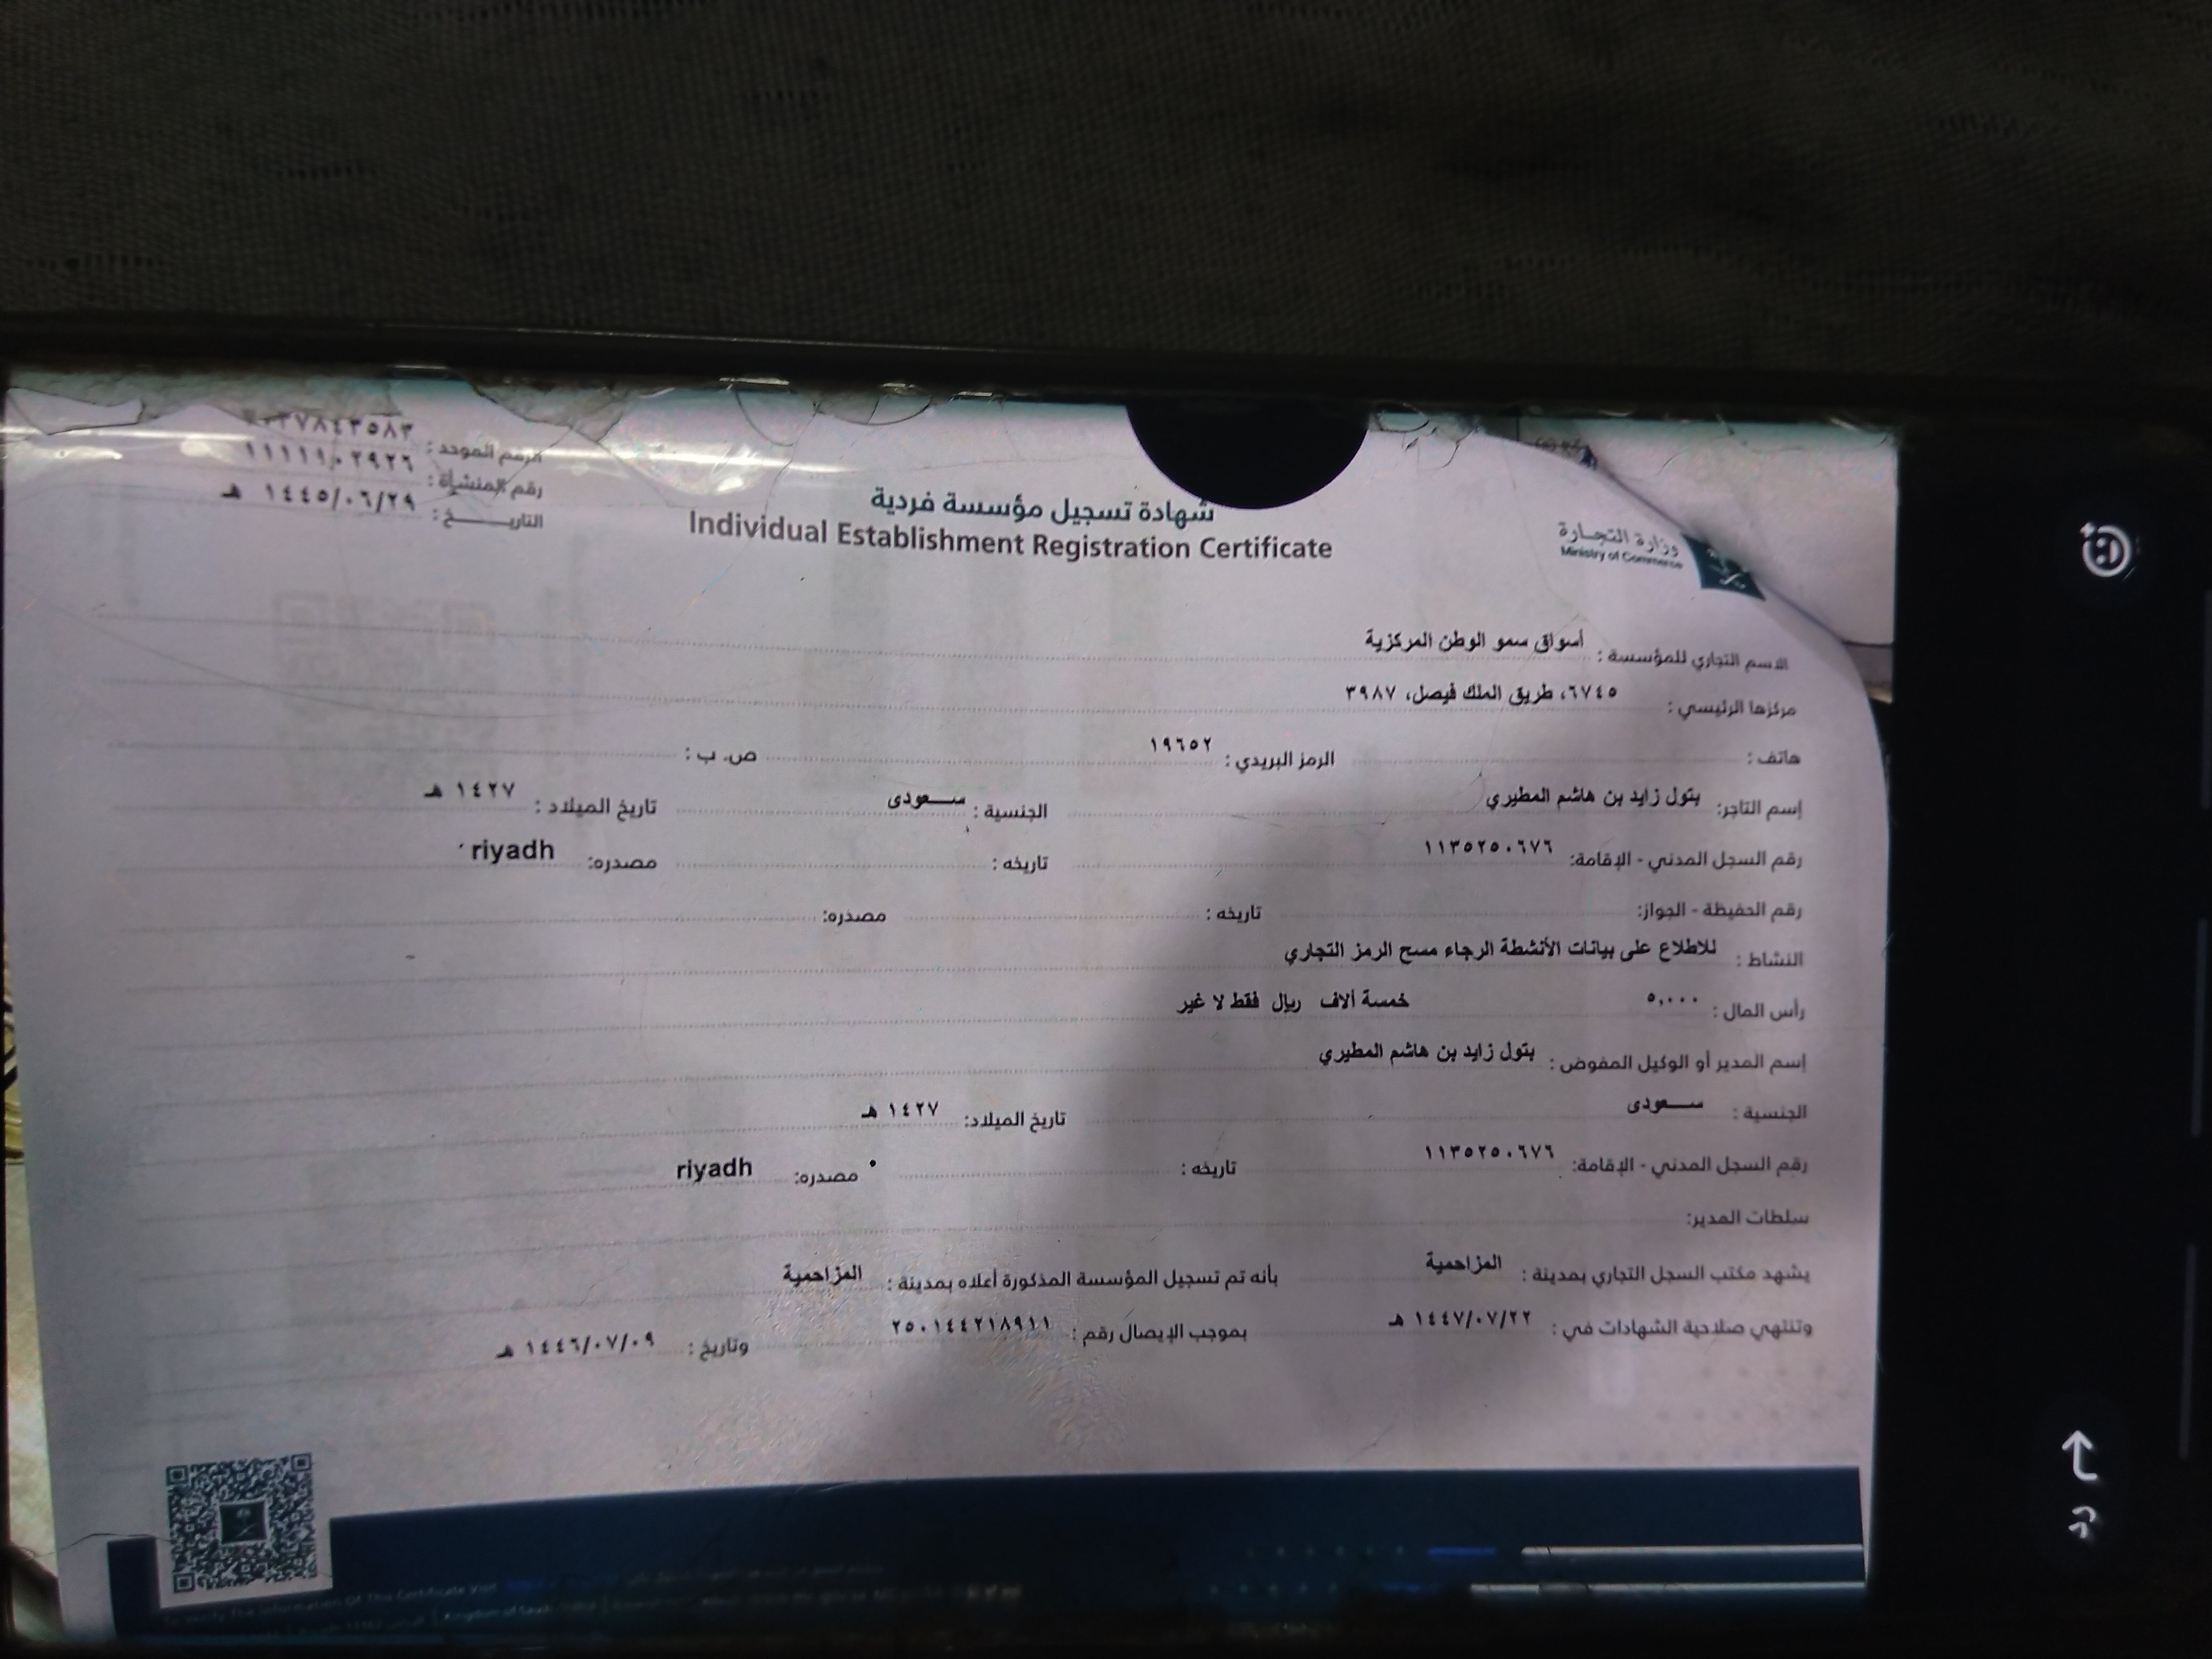 ٧٨٤٣٥٨٣
الرقم الموحد :
رقم المنشأة : ١١١١١٠٢٩٢٦
التاريــــخ : ١٤٤٥/٠٦/٢٩ هـ
شهادة تسجيل مؤسسة فردية
Individual Establishment Registration Certificate
وزارة التجـارة
Ministry of Commerce
الاسم التجاري للمؤسسة : أسواق سمو الوطن المركزية
مركزها الرئيسي : ٦٧٤٥، طريق الملك فيصل، ٣٩٨٧
هاتف : الرمز البريدي : ١٩٦٥٢ ص. ب :
إسم التاجر: بتول زايد بن هاشم المطيري الجنسية : ســـعودى تاريخ الميلاد : ١٤٢٧ هـ
رقم السجل المدني - الإقامة: ١١٣٥٢٥٠٦٧٦ تاريخه : مصدره: riyadh
رقم الحفيظة - الجواز: تاريخه : مصدره:
النشاط : للاطلاع على بيانات الأنشطة الرجاء مسح الرمز التجاري
رأس المال : ٥,٠٠٠ خمسة ألاف ريال فقط لا غير
إسم المدير أو الوكيل المفوض : بتول زايد بن هاشم المطيري
الجنسية : ســـعودى تاريخ الميلاد: ١٤٢٧ هـ
رقم السجل المدني - الإقامة: ١١٣٥٢٥٠٦٧٦ تاريخه : مصدره: riyadh
سلطات المدير:
يشهد مكتب السجل التجاري بمدينة : المزاحمية بأنه تم تسجيل المؤسسة المذكورة أعلاه بمدينة : المزاحمية
وتنتهي صلاحية الشهادات في : ١٤٤٧/٠٧/٢٢ هـ بموجب الإيصال رقم : ٢٥٠١٤٤٢١٨٩١١ وتاريخ : ١٤٤٦/٠٧/٠٩ هـ
To Verify The Information Of This Certificate Visit